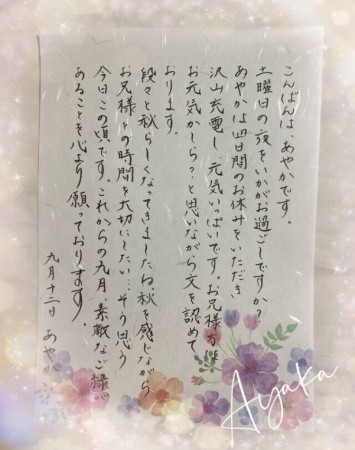 こんばんは、あやかです。
土曜日の夜をいかがお過ごしですか?
あやかは四日間のお休みをいただき
沢山充電し、元気いっぱいです。お兄様が
お元気かしら?と思いながら文を認めて
おります。
段々と秋らしくなってきましたね。秋を感じながら
お兄様との時間を大切にしたい…そう思う
今日この頃です。これからの九月、素敵なご縁が
あることを心より願っております。
九月十二日 あやか
Ayaka